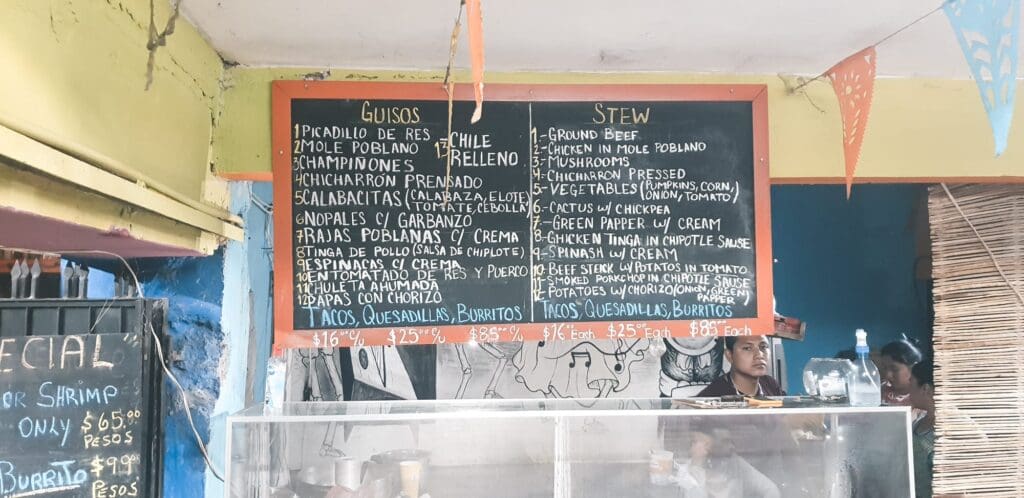 GUISOS
1 PICADILLO DE RES
2 MOLE POBLANO
3 CHAMPIÑONES
4 CHICHARRON PRENSADO
5 CALABACITAS (CALABAZA, ELOTE,
TOMATE, CEBOLLA)
6 NOPALES C/ GARBANZO
7 RAJAS POBLANAS C/ CREMA
8 TINGA DE POLLO (SALSA DE CHIPLOTE)
9 ESPINACAS C/ CREMA
10 ENTOMATADO DE RES Y PUERCO
11 CHULETA AHUMADA
12 PAPAS CON CHORIZO
13 CHILE
RELLENO
TACOS, QUESADILLAS, BURRITOS
$16.00 c/u $25.00 c/u $85.00 c/u
STEW
1.- GROUND BEEF
2.- CHICKEN IN MOLE POBLANO
3.- MUSHROOMS
4.- CHICHARRON PRESSED
5- VEGETABLES (PUMPKINS, CORN,
ONION, TOMATO)
6.- CACTUS W/ CHICKPEA
7.- GREEN PAPPER W/ CREAM
8.- CHICKEN TINGA IN CHIPOTLE SAUSE
9.- SPINASH W/ CREAM
10. BEEF STEICK W/ POTATOS IN TOMATO
11- SMOKED PORKCHOP IN CHIPOTLE SAUSE
12- POTATOES W/ CHORIZO (ONION, GREEN
PAPPER)
TACOS, QUESADILLAS, BURRITOS
$16.00 Each $25.00 Each $85.00 Each
ECIAL
OR SHRIMP
ONLY $65.00
PESOS
BURRITO $99.00
PESOS